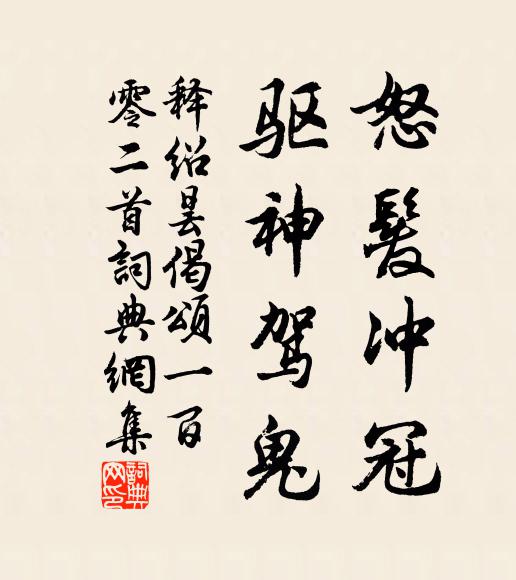 怒髮冲冠
驱神驾鬼
释绍昙偈颂一百
零二首詞典網集
詞典网印